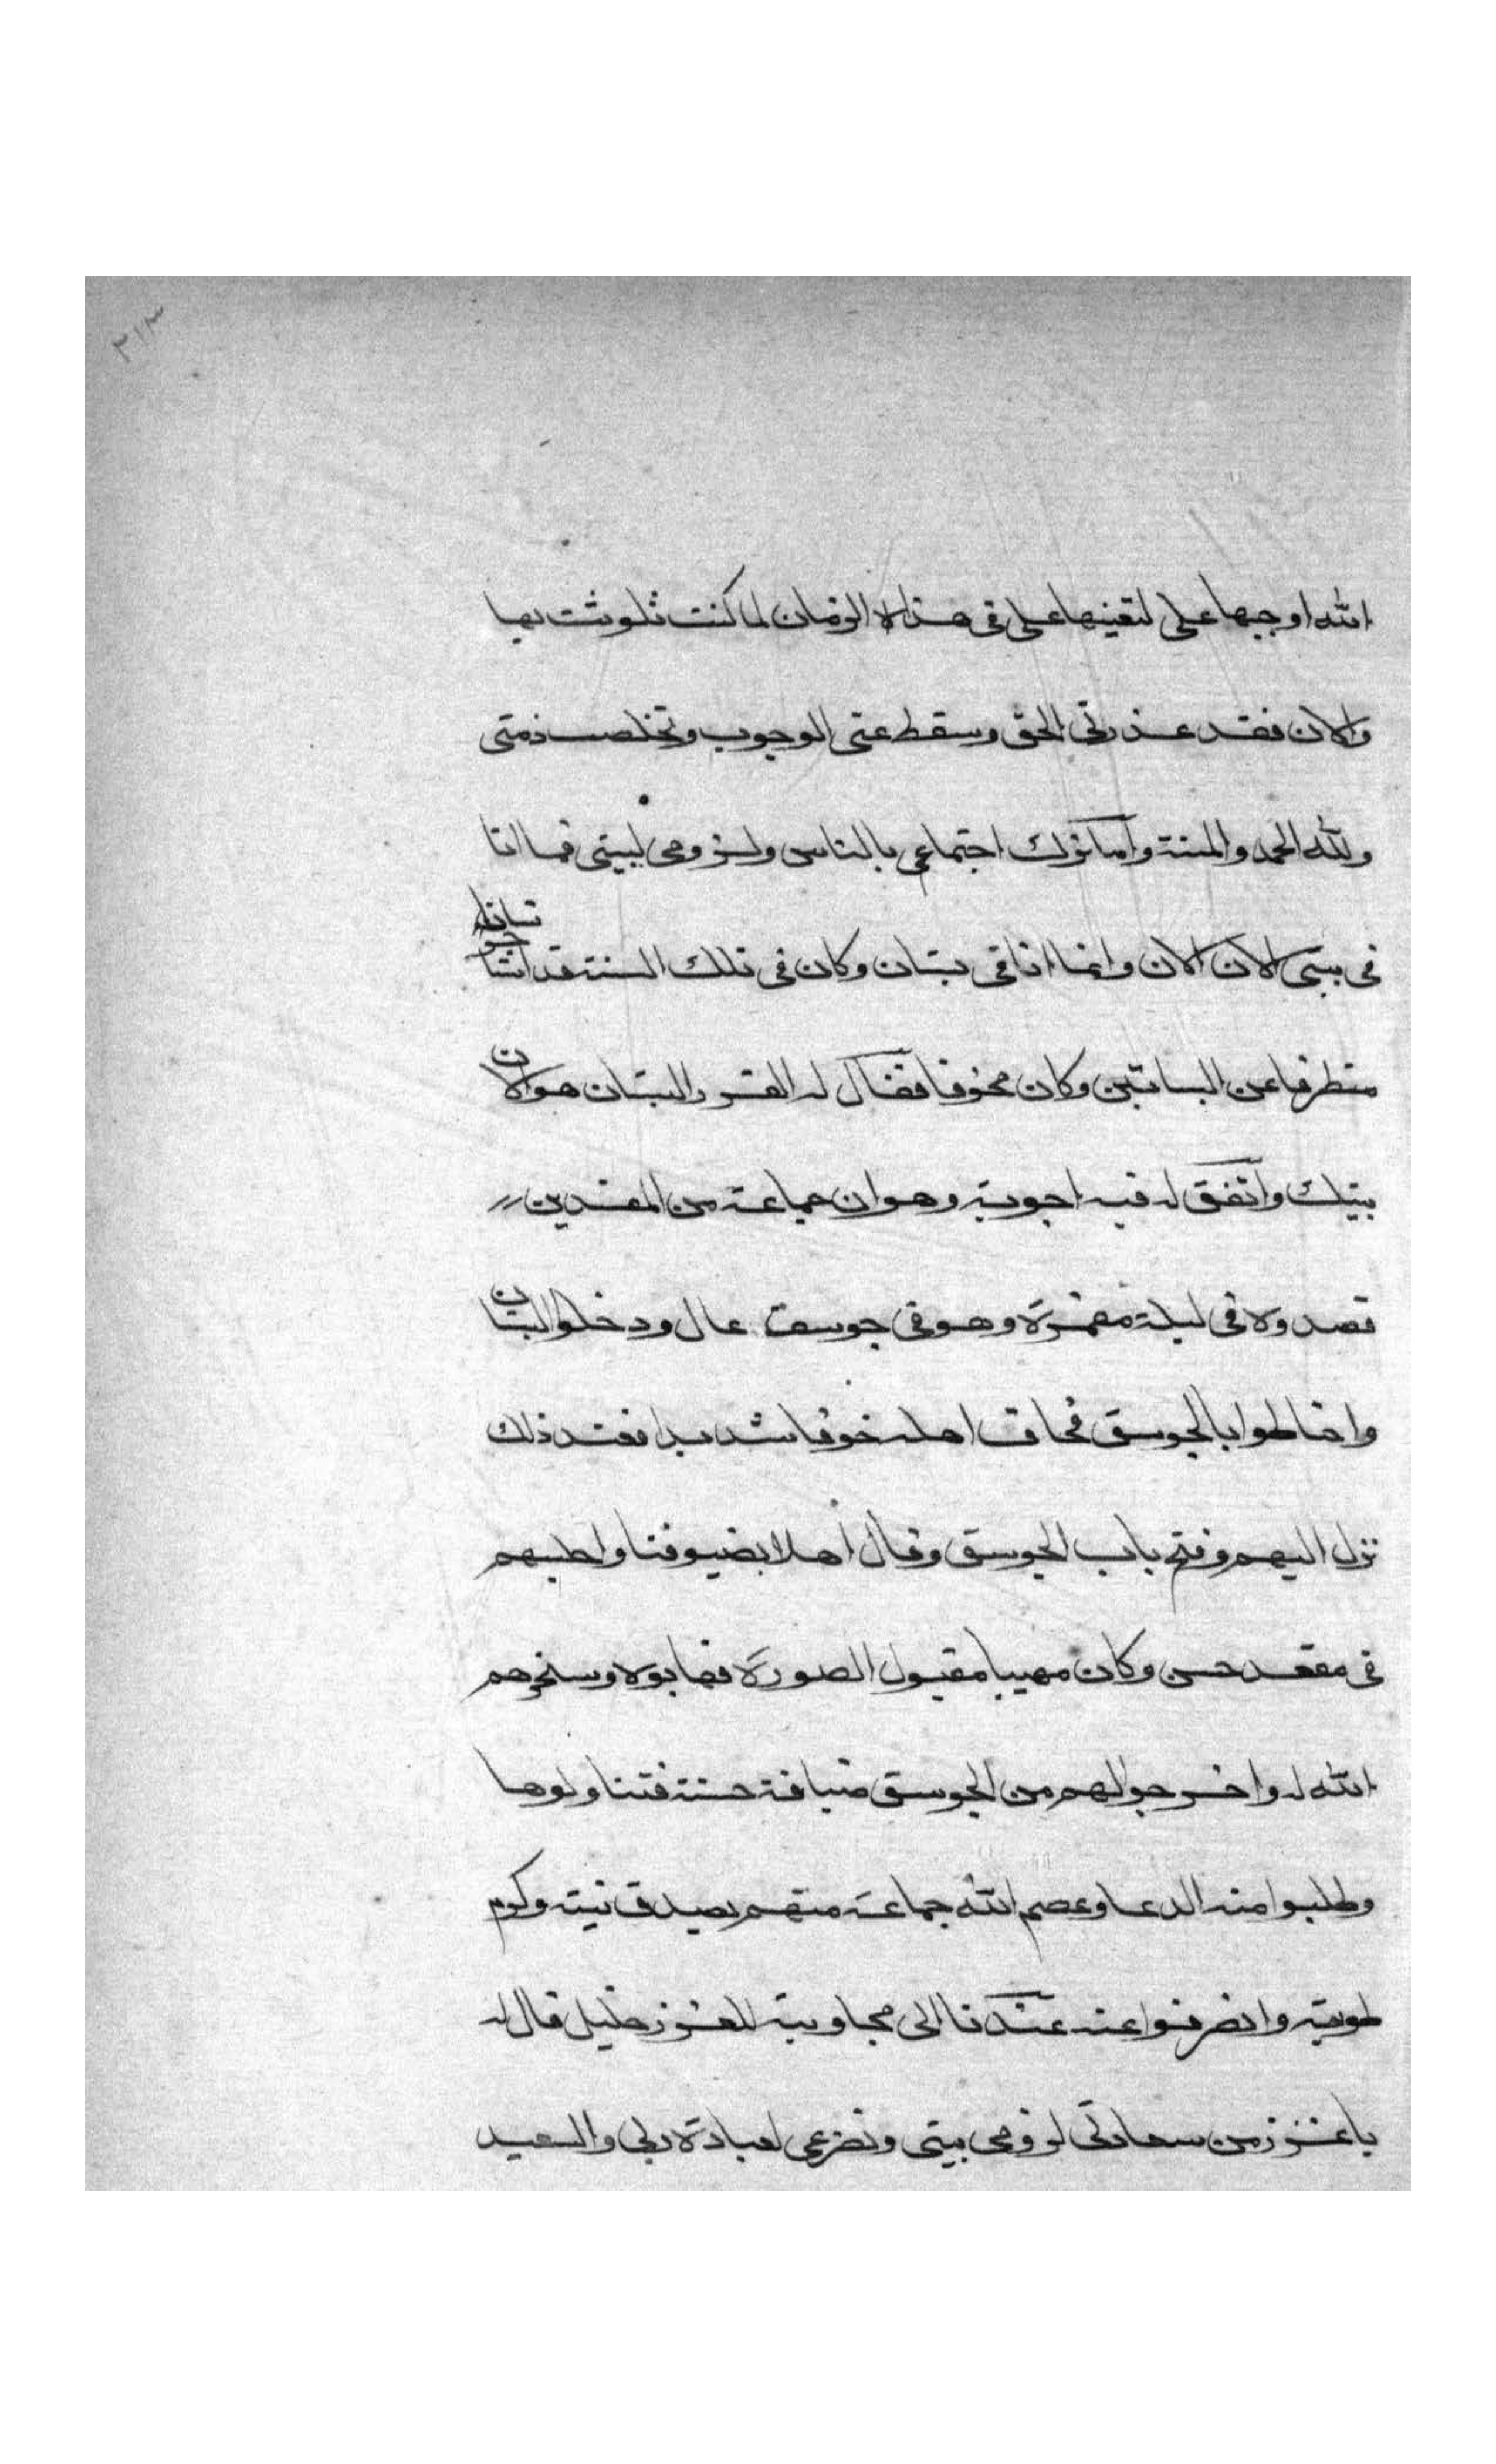 ٣١٣
الله اوجبها على لتعينها على في هذه الازمان لما كنت تلوثت بها
والان فقد عذرني الحق وسقط عني الوجوب وتخلصت ذمتي
ولله الحمد والمنة واما ترك اجتماعي بالناس ولزومي لبيتي فما انا
في بيتي الان الان وانما انا في بستان وكان في تلك السنة قد استاجر بستانا
متطرفا عن البساتين وكان مخوفا فقال له الغز والبستان هو الان
بيتك واتفق له فيه اجوبة وهو ان جماعة من المفسدين
قصدوه في ليلة مقمرة وهو في جوسق عال ودخلوا البستان
واحاطوا بالجوسق فخاف اهله خوفا شديدا فعند ذلك
نزل اليهم وفتح باب الجوسق وقال أهلا بضيوفنا واجلسهم
في مقعد حسن وكان مهيبا مقبول الصورة فهابوه وسخرهم
الله له واخرجوا لهم من الجوسق ضيافة حسنة فتناولوها
وطلبوا منه الدعا وعصم الله جماعته منهم بصدق نيته وكرم
طويته وانصرفوا عنه عدنا الى مجاوبته للغرز خليل قال له
يا غرز من سعادتي لزومي بيتي وتضرعي لعبادة ربي والسعيد